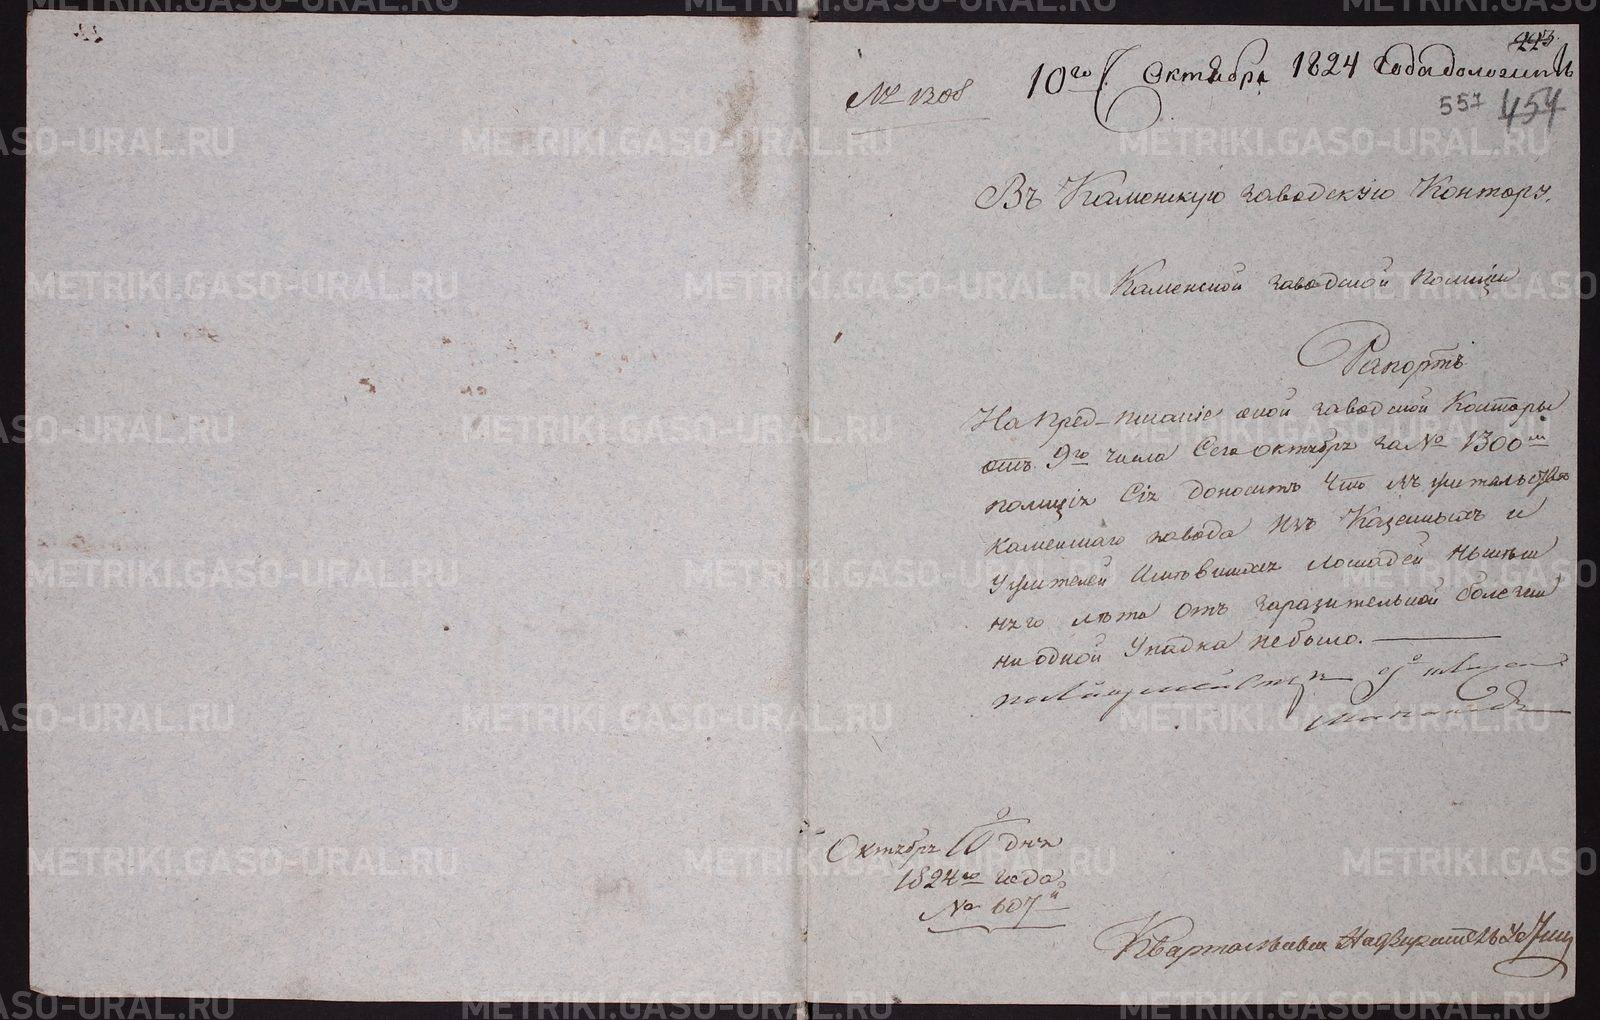 443.
10го Октября 1824 Года доложитъ
№ 1308
557 454
Въ Каменскую заводскую Контору.
Каменской заводской полиціи
Рапортъ
На пред-писаніе оной заводской Конторы
отъ 9го числа Сего октября за № 1300м
полиція Сія доноситъ Что въ жительствѣ
каменскаго завода изъ Казенныхъ и
У жителей имѣвшихся лошадей нынѣш
няго лѣта отъ заразительной болезни
ни одной Упадка небыло.
Октября 10 дня
1824го года
№ 607й
Квартальной Надзиратель
METRIKI.GASO-URAL.RU